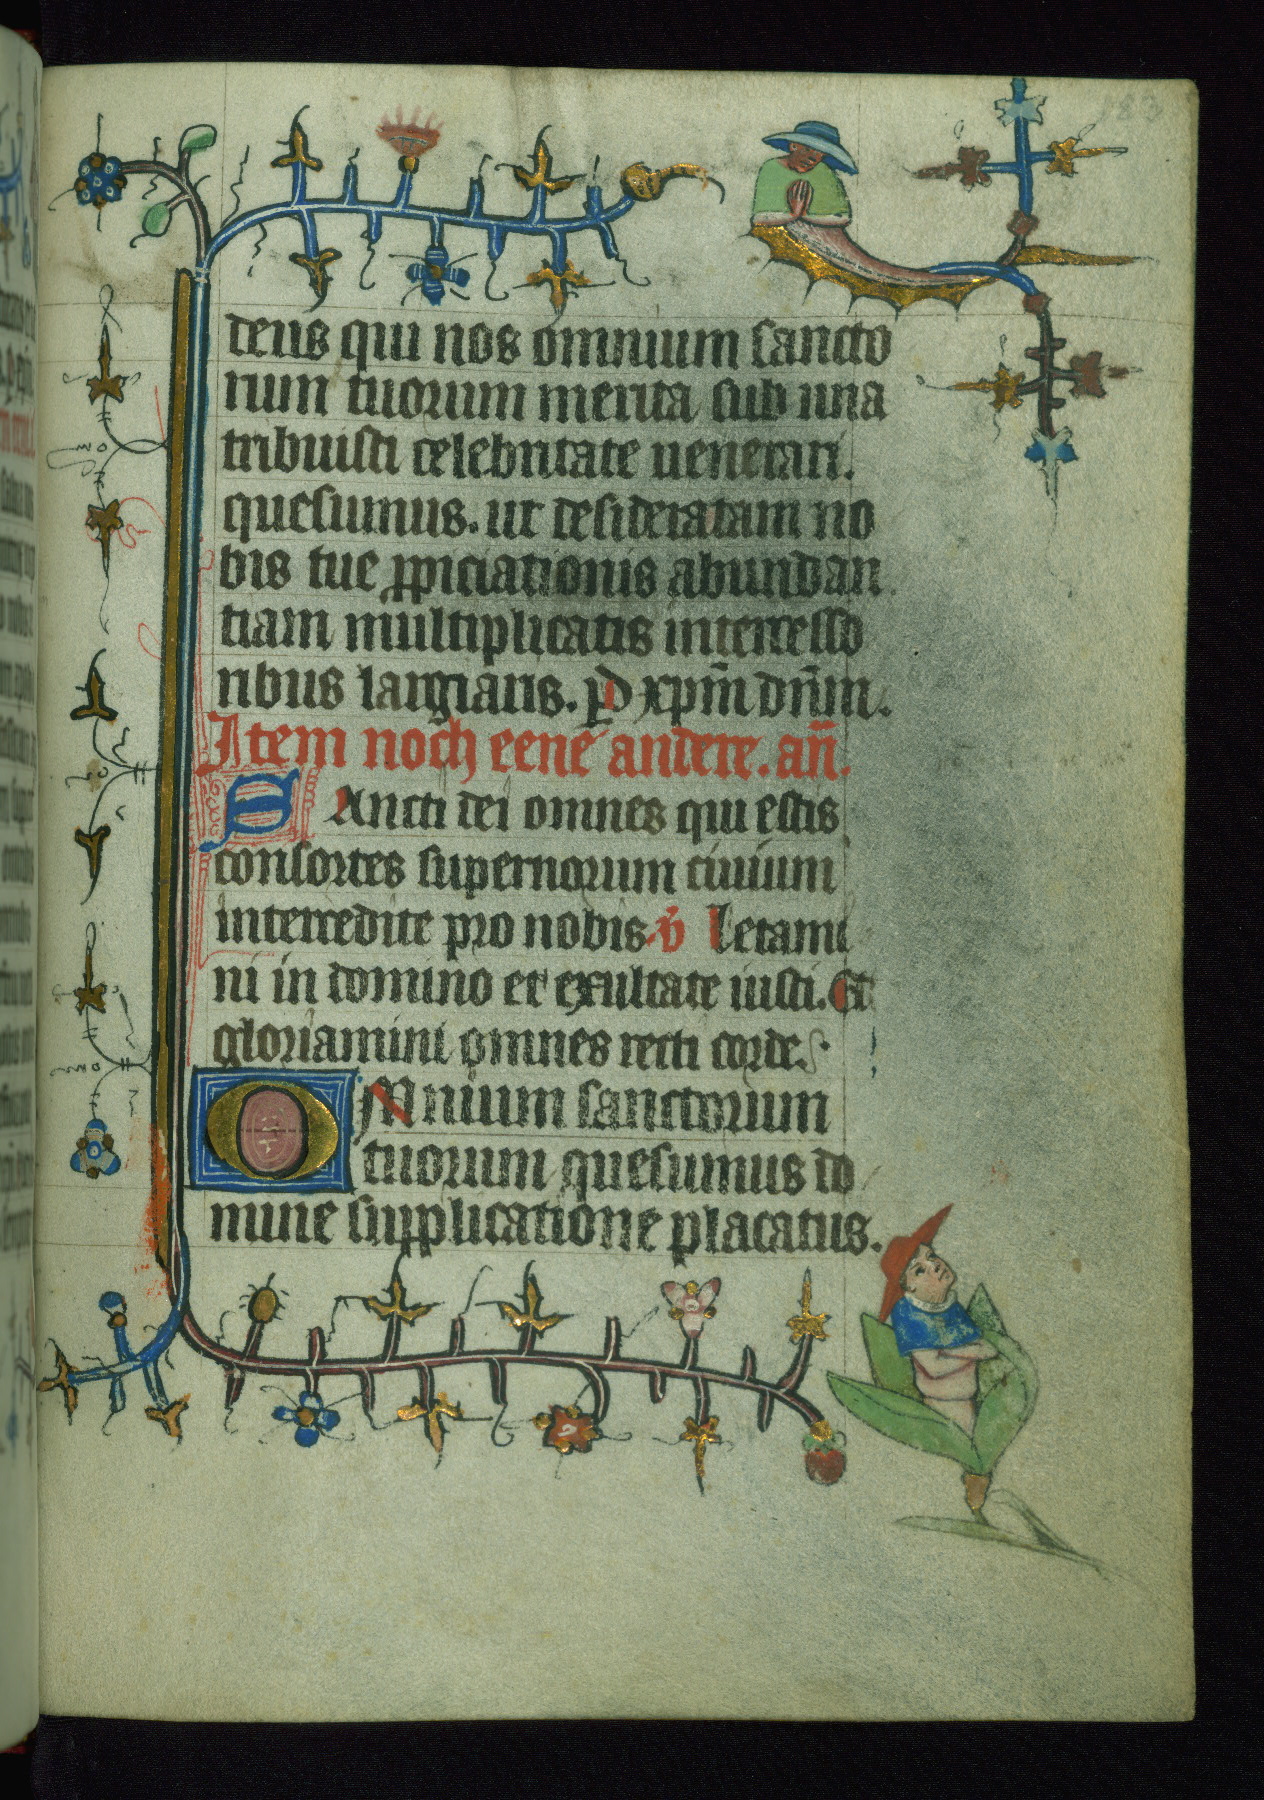 183
deus qui nos omnium sancto
rum tuorum merita sub una
tribuisti celebritate uenerari.
quesumus. ut desideratam no
bis tue ꝓpiciationis abundan
tiam multiplicatis intercesso
ribus largiaris. ꝑ d xp̄m dn̄m.
Item noch eene andere. an̄.
SAncti dei omnes qui estis
consortes supernorum ciuium
intercedite pro nobis. v̄ Letami
ni in domino et exultate iusti. Et
gloriamini omnes recti corde.
OMnium sanctorum
tuorum quesumus do
mine supplicatione placatus.